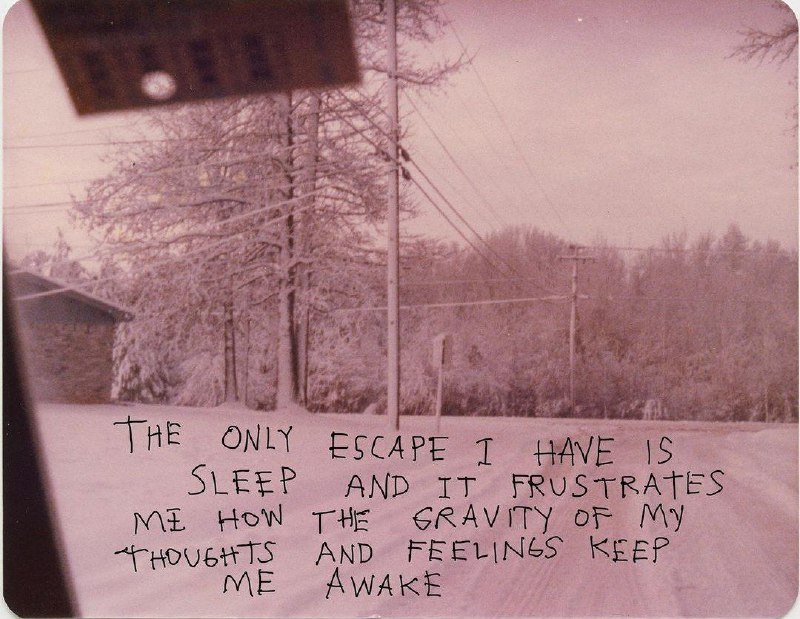 THE ONLY ESCAPE I HAVE IS
SLEEP AND IT FRUSTRATES
ME HOW THE GRAVITY OF MY
THOUGHTS AND FEELINGS KEEP
ME AWAKE